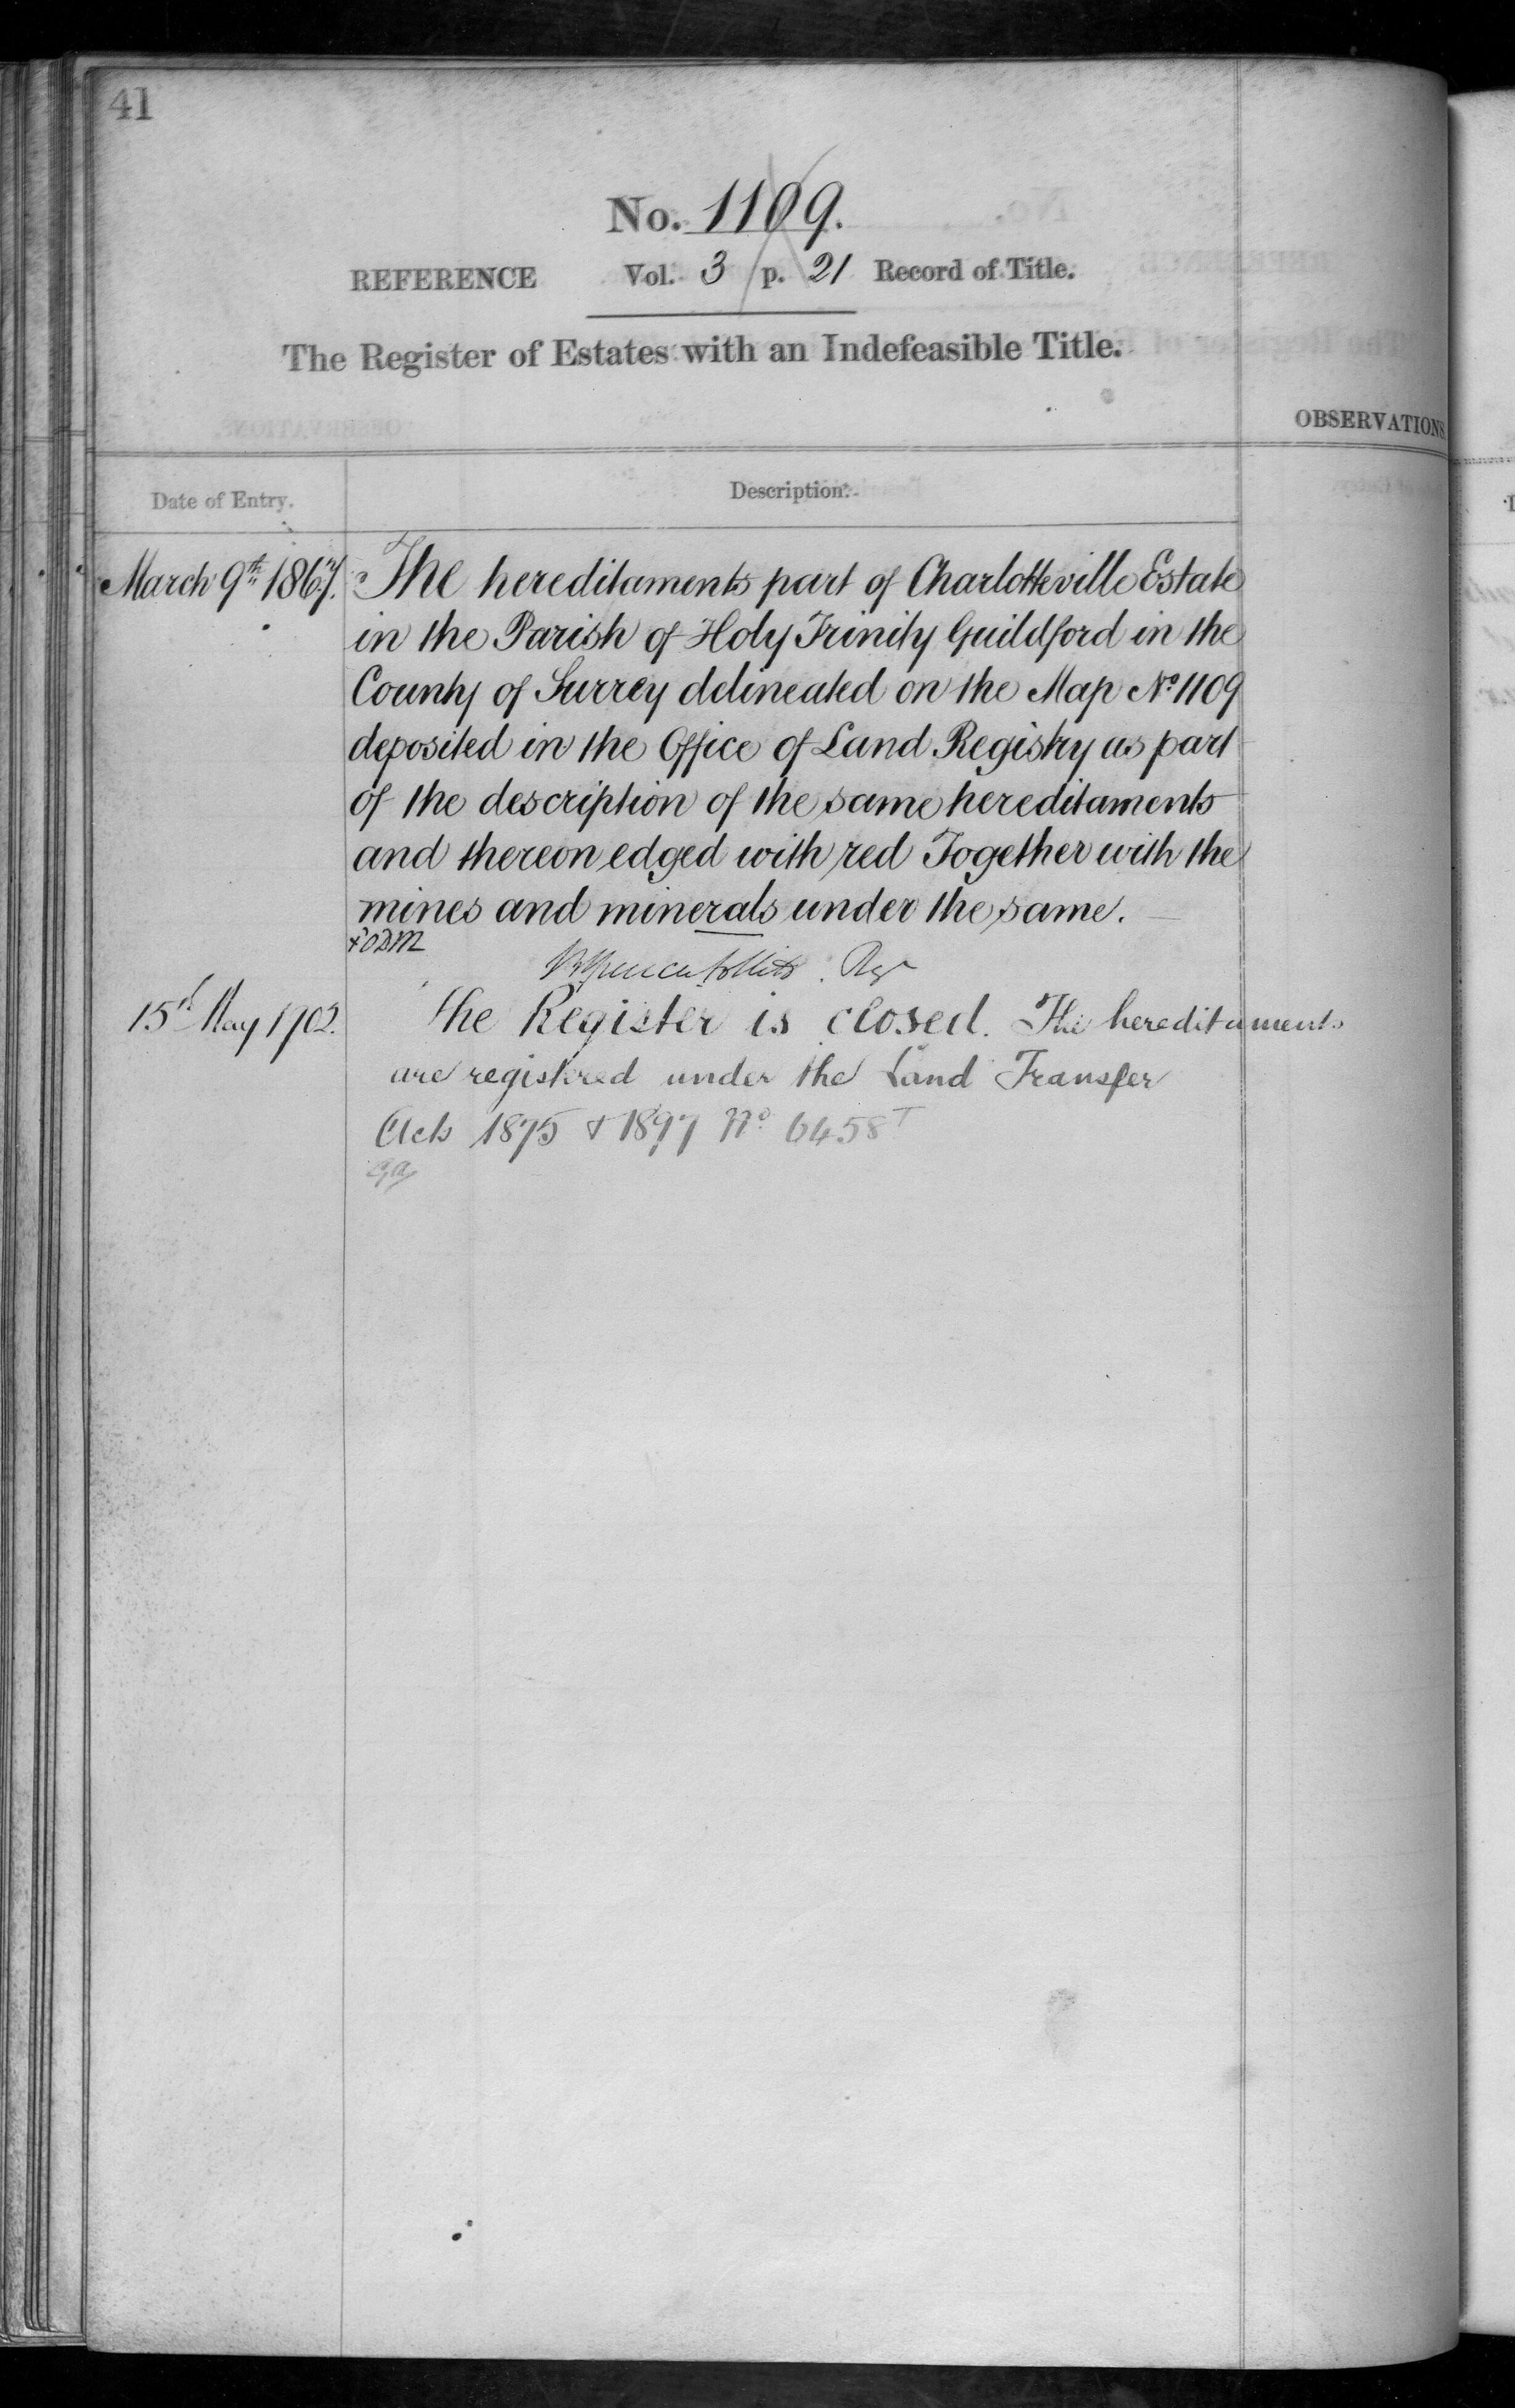 41
No. 1109.
REFERENCE Vol. 3 p. 21 Record of Title.
The Register of Estates with an Indefeasible Title.
OBSERVATIONS.
Date of Entry. Description.
March 9th 1867. The hereditaments part of Charlotteville Estate
in the Parish of Holy Trinity Guildford in the
County of Surrey delineated on the Map No 1109
deposited in the Office of Land Registry as part
of the description of the same hereditaments
and thereon edged with red Together with the
mines and minerals under the same.
Regr
15th May 1902. The Register is closed. The hereditaments
are registered under the Land Transfer
Acts 1875 & 1897 No 6458T